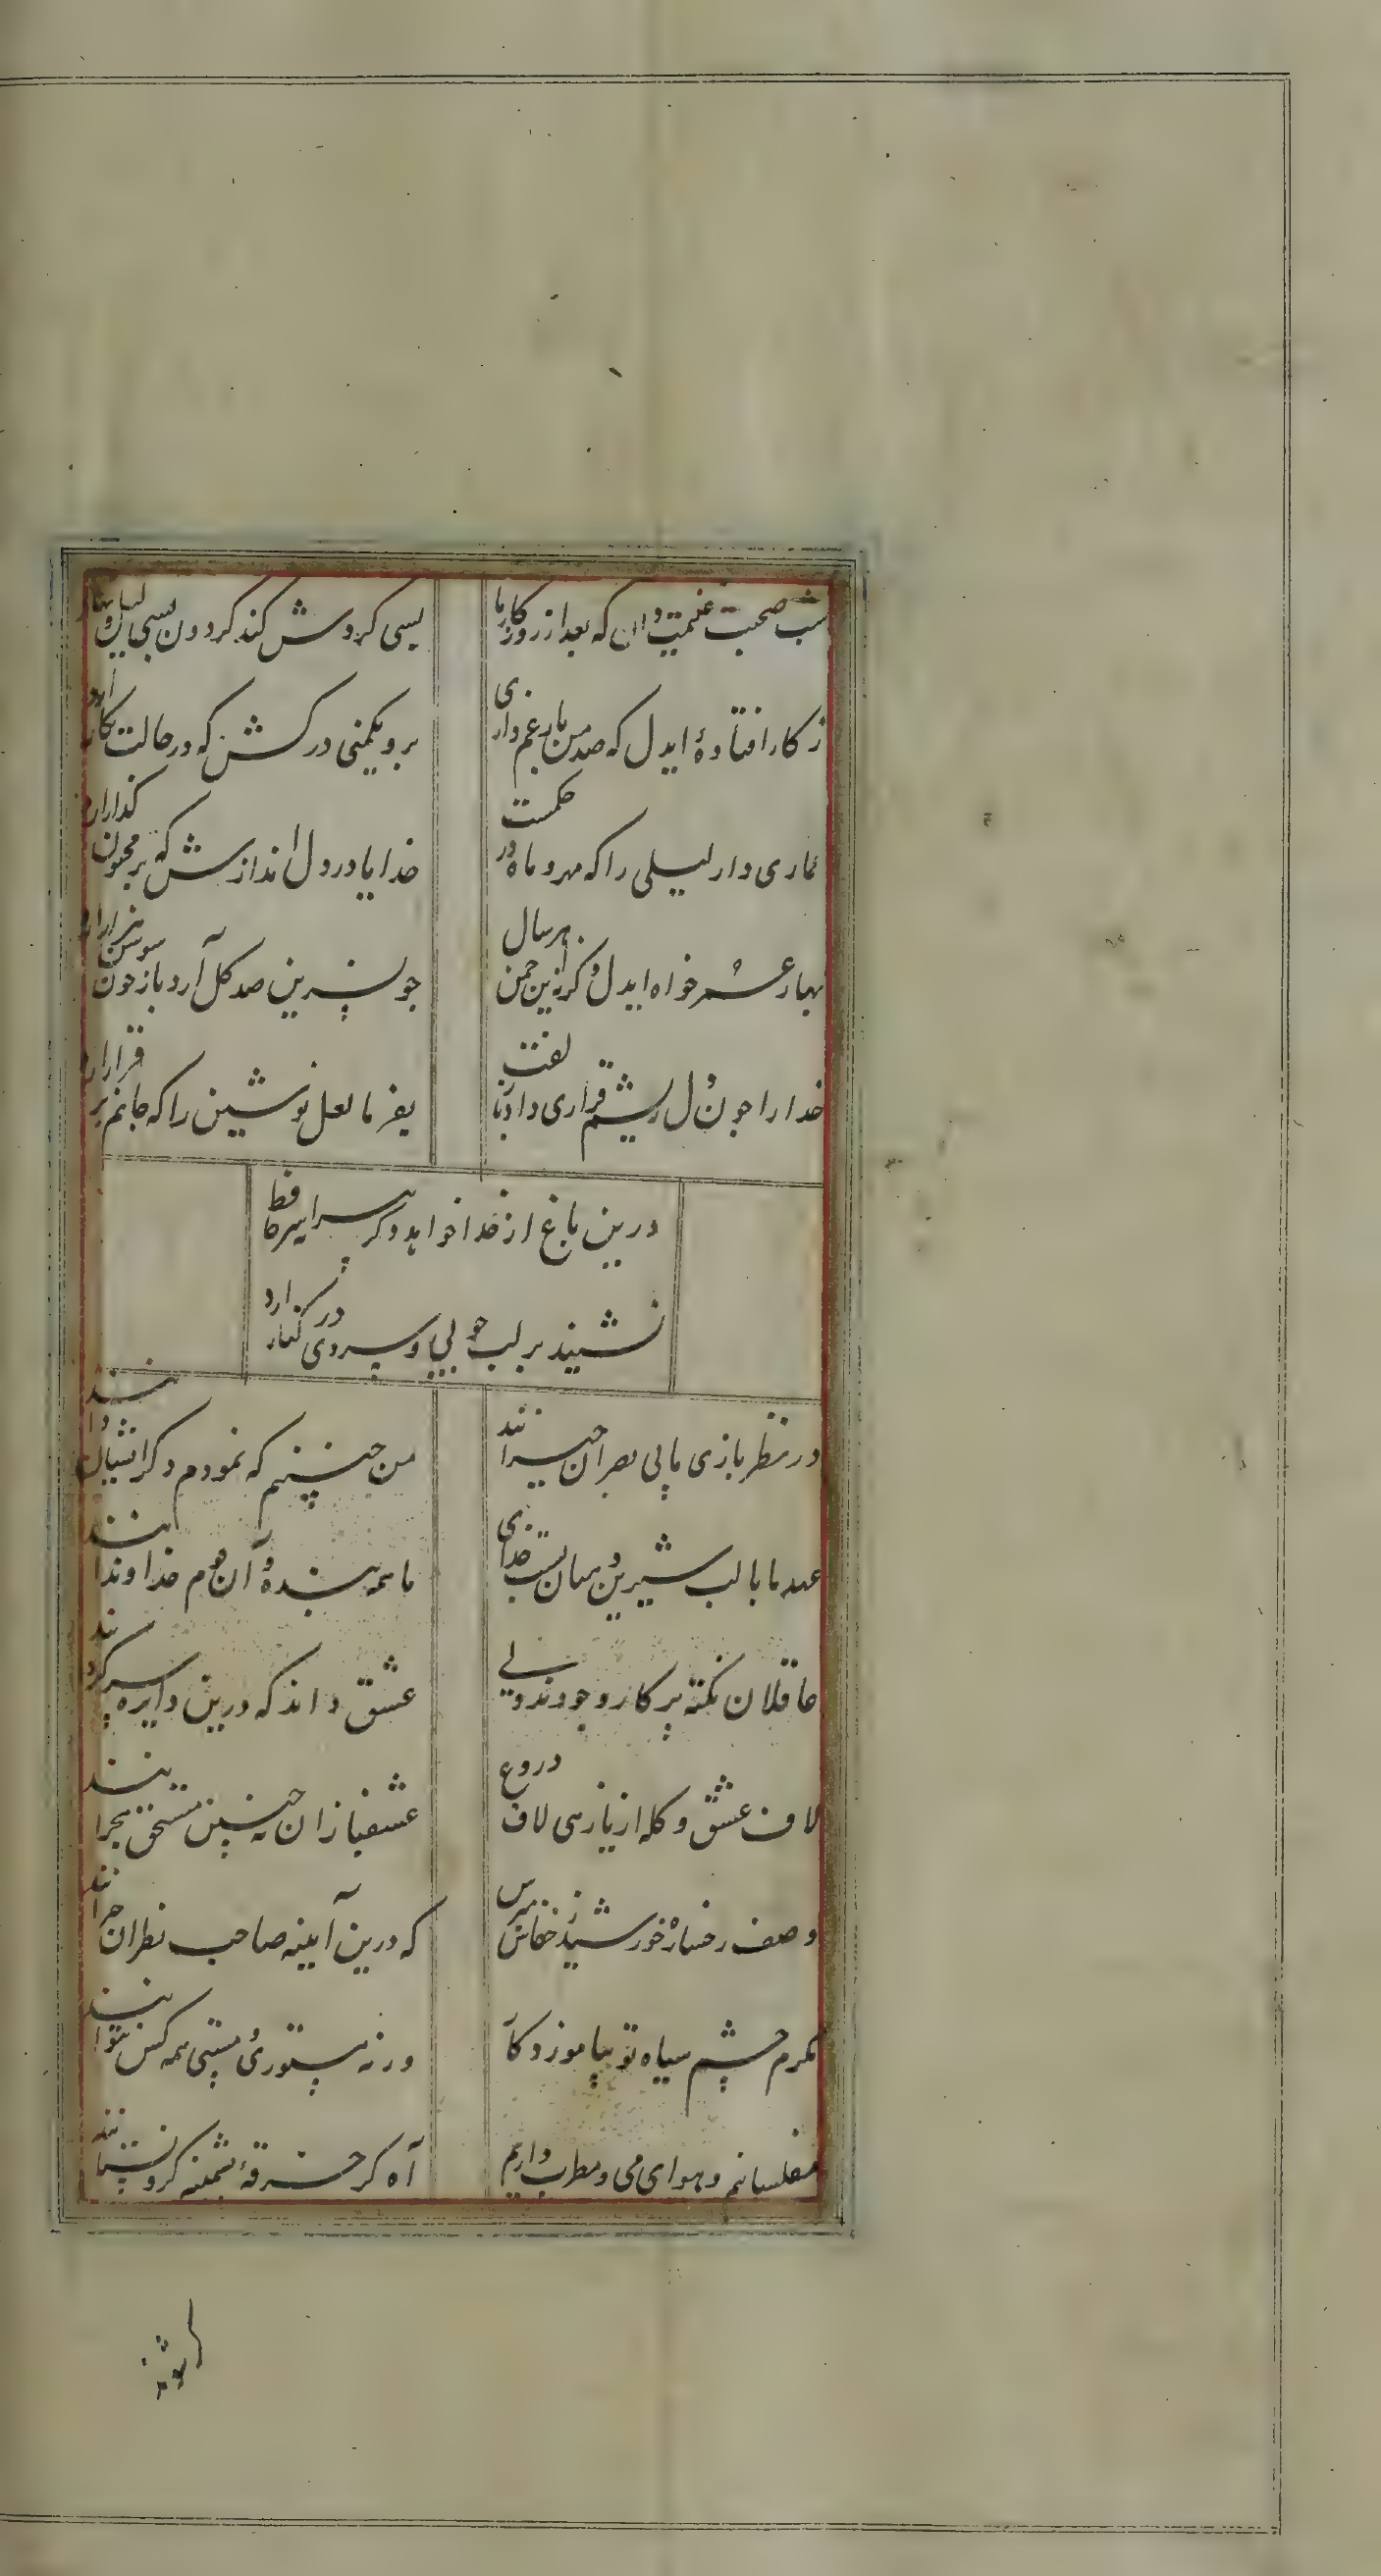 شب صحبت غنیمت دان که بعد از روزگار ما
بسی کردش کند کردون بسی لیل و نهار ارد
ز کار افتادهٔ ایدل که صد من بار غم داری
برو یکمنی درکش که در حالت بکار ارد
عماری دار لیلی را که مهر و ماه در حکمست
خدایا در دل اندازش که بر مجنون کذار ارد
بهار عمر خواه ایدل وکرنه این چمن هر سال
چو نسرین صد کل آرد باز چون سوسن هزار ارد
خدا را چون دل ریشم قراری داد با زلفت
بفرما لعل نوشین را که جانم بر قرار ارد
درین باغ از خدا خواهد دکر پیرانه سر حافظ
نشیند بر لب جویی و سروی در کنار ارد
در نظر بازی ما بی بصران حیرانند
من چنینم که نمودم دکر ایشان دانند
عهد ما با لب شیرین دهنان بست خدای
ما همه بنده و آن قوم خداوندانند
عاقلان نکته پرکار وجودند ولی
عشق داند که درین دایره سرکردانند
لاف عشق و کله از یار زهی لاف دروغ
عشقبازان چنین مستحق هجرانند
وصف رخسارهٔ خورشید ز خفاش مپرس
که درین آیینه صاحب نظران حیرانند
مکرم چشم سیاه تو بیاموزد کار
ورنه مستوری و مستی همه کس نتوانند
مفلسانیم و هوای می و مطرب داریم
آه کر خرقهٔ پشمینه کرو نستانند